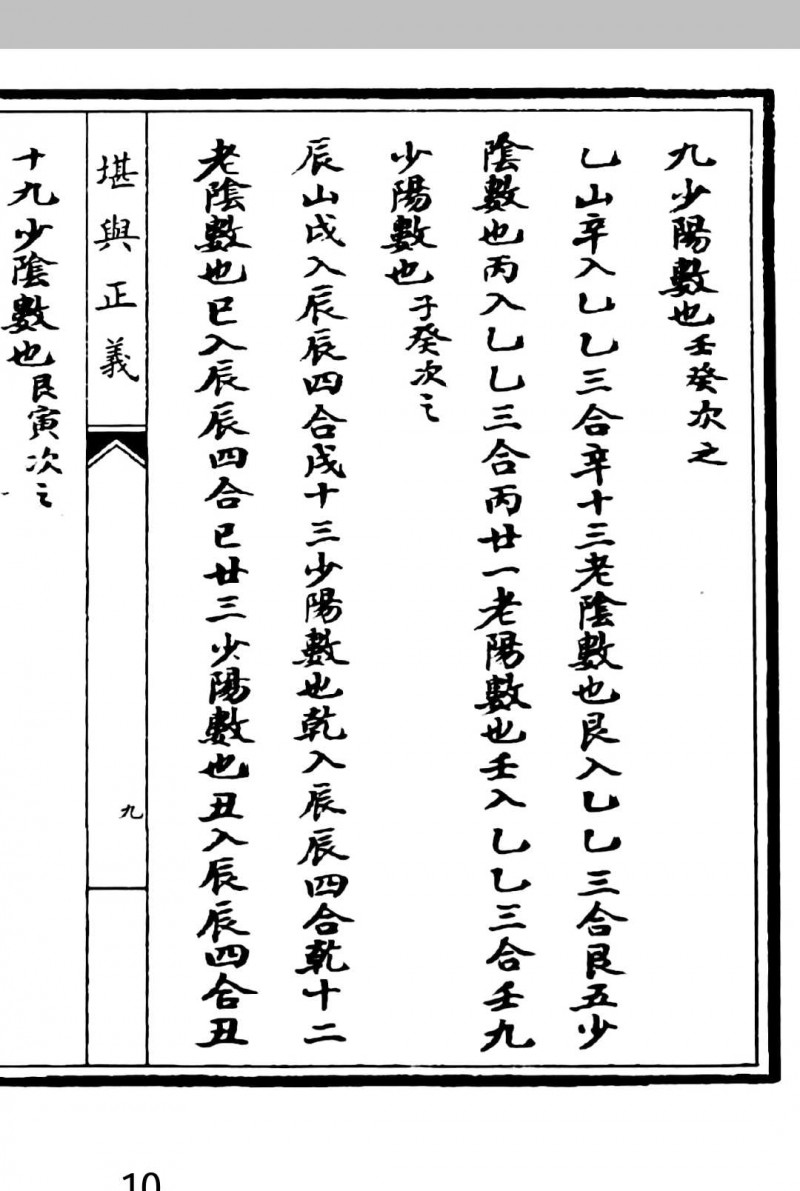 九少陽數也壬癸次之
乙山辛入乙乙三合辛十三老陰數也艮入乙乙三合艮五少
陰數也丙入乙乙三合丙廿一老陽數也壬入乙乙三合壬九
少陽數也子癸次之
辰山戌入辰辰四合戌十三少陽數也乾入辰辰四合乾十二
老陰數也巳入辰辰四合巳廿三少陽數也丑入辰辰四合丑
堪輿正義
九
十九少陰數也艮寅次之
10